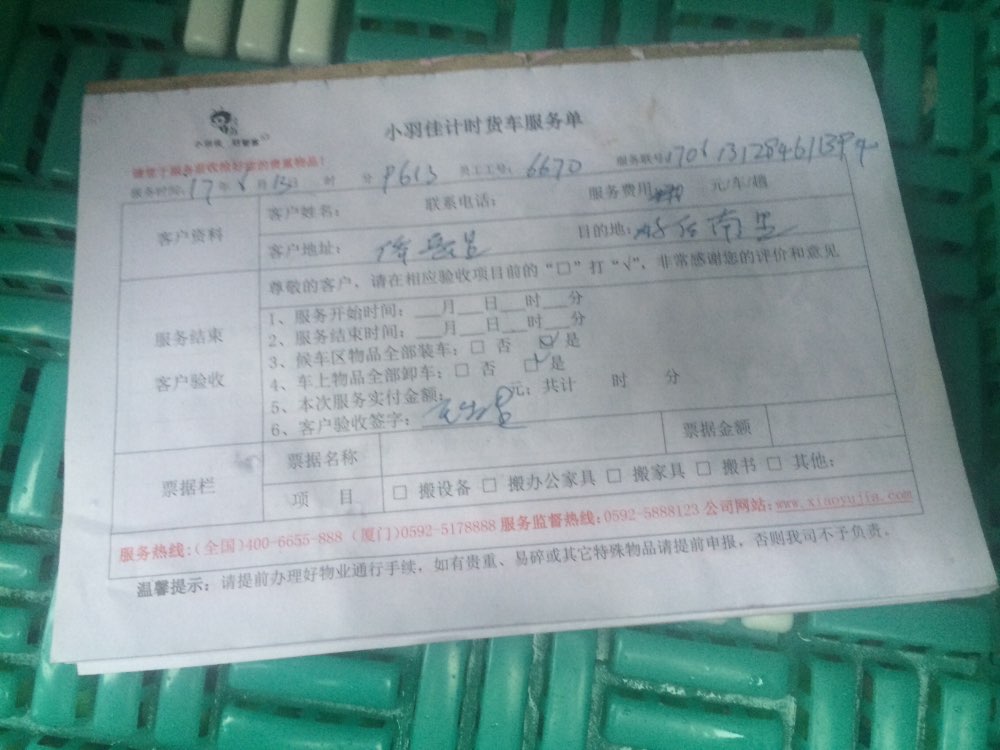 小羽佳计时货车服务单
小羽佳 好管家
服务时间: 17年6月13日 时 分 P613 员工工号: 6670 服务联号: 170613128461394
客户资料 客户姓名: 联系电话: 服务费用 元/车/趟
客户地址: 目的地: 南里
服务结束 客户验收
尊敬的客户，请在相应验收项目前的“□”打“√”，非常感谢您的评价和意见
1、服务开始时间: ___月___日___时___分
2、服务结束时间: ___月___日___时___分
3、候车区物品全部装车: □ 否 ☑ 是
4、车上物品全部卸车: □ 否 ☑ 是
5、本次服务实付金额: 元; 共计 时 分
6、客户验收签字:
票据栏 票据名称 票据金额
项 目 □ 搬设备 □ 搬办公家具 □ 搬家具 □ 搬书 □ 其他:
服务热线:(全国)400-6655-888 (厦门)0592-5178888 服务监督热线:0592-5888123 公司网站:www.xiaoyujia.com
温馨提示: 请提前办理好物业通行手续，如有贵重、易碎或其它特殊物品请提前申报，否则我司不予负责。